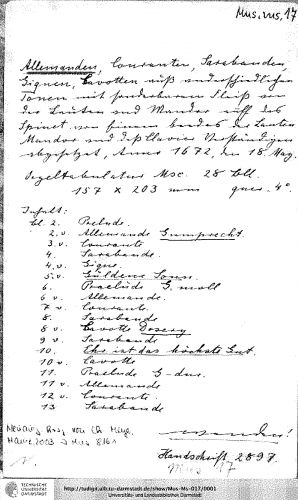 Mus. ms. 17
Allemanden, Couranten, Sarabanden,
Giguen, Gavotten auß underschiedlichen
Tonen mit sonderbaren Fleiß von
der Lauten und Mandor uff das
Spinet von einem beedes der Lauten
Mandor und deß Clavier Verständigen
abgesetzet, Anno 1672, den 18. May.
Orgeltabulatur Msc. 28 Bll.
157 x 203 mm quer. 4°.
Inhalt:
Bl. 2. Prelude.
2 v. Allemande Gumprecht.
3 v. Courante
4. Sarabande.
4 v. Gigue.
5 v. Güldene Sonne.
6. Praelude G moll
6 v. Allemande.
7 v. Courante.
8. Sarabande
8 v. Gavotte Dosery
9 v. Sarabande
10. Ehr ist das höchste Gut.
10 v. Gavotte
11. Prelude G-dur.
11 v. Allemande
12 v. Courante
13 Sarabande
2003 Mus 816
wenden!
Handschrift 2897.
Mus 17
TECHNISCHE
UNIVERSITÄT
DARMSTADT
http://tudigit.ulb.tu-darmstadt.de/show/Mus-Ms-017/0001
Universitäts- und Landesbibliothek Darmstadt